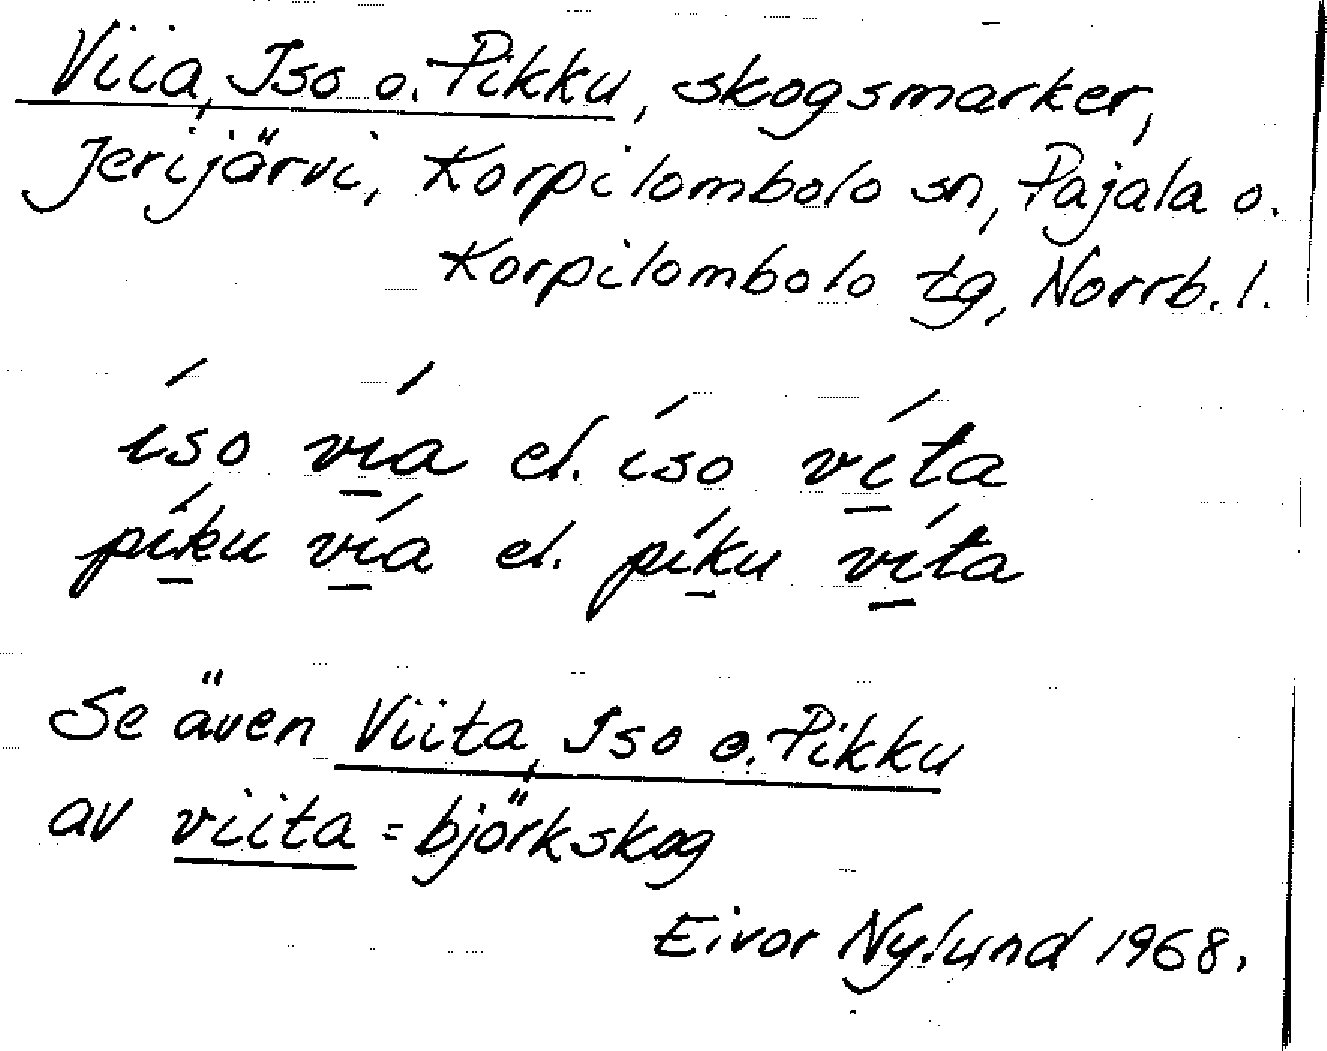 Viia, Iso o. Pikku, skogsmarker,
Jerijärvi, Korpilombolo sn, Pajala o.
Korpilombolo tg, Norrb. l.
íso ví̲a el. íso ví̲ta
pí̲ku ví̲a el. pí̲ku ví̲ta
Se även Viita, Iso o. Pikku
av viita = björkskog
Eivor Nylund 1968.